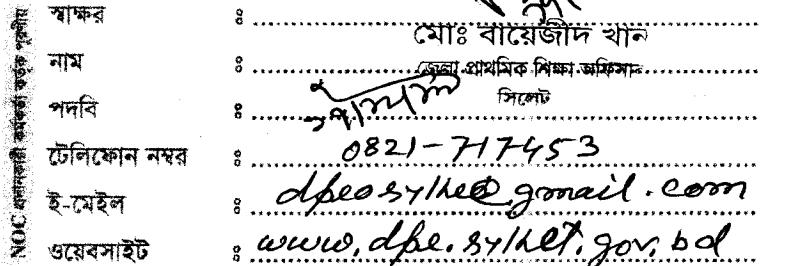 NOC প্রদানকারী কর্মকর্তা কর্তৃক পূরণীয়
স্বাক্ষর ঃ
মোঃ বায়েজীদ খান
নাম ঃ জেলা প্রাথমিক শিক্ষা অফিসার
সিলেট
পদবি ঃ
টেলিফোন নম্বর ঃ 0821-717453
ই-মেইল ঃ dpeosylhe@gmail.com
ওয়েবসাইট ঃ www.dpe.sylhet.gov.bd